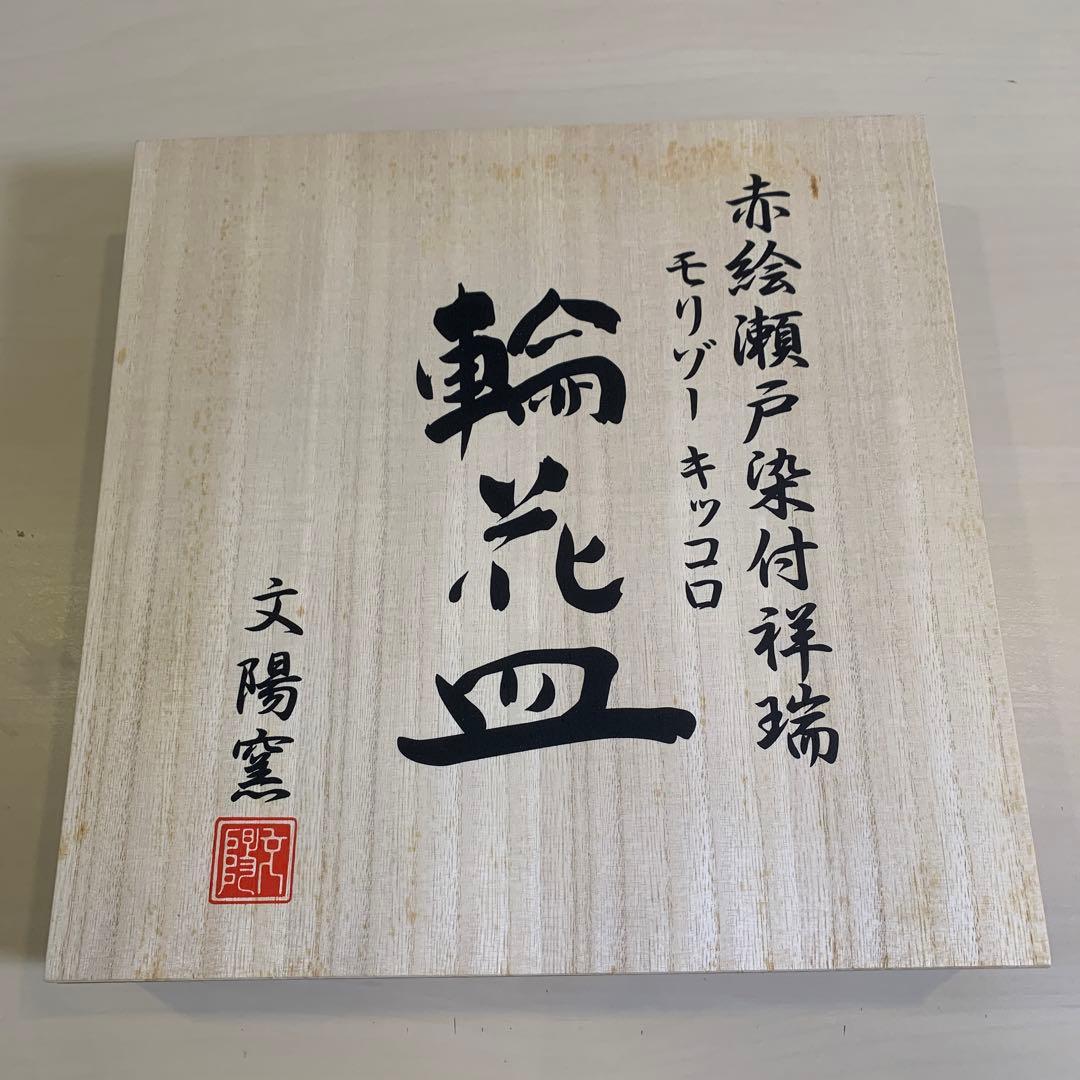 赤絵瀬戸染付祥瑞
モリゾー キッコロ
輪花皿
文陽窯
文陽